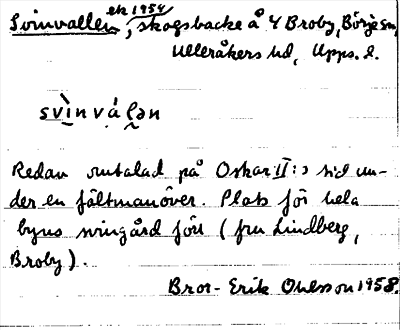 ek 1954
Svinvallen, skogsbacke å 4 Broby, Börje sn,
Ulleråkers hd, Upps. l.
svìnválən
Redan omtalad på Oskar II:s tid un-
der en fältmanöver. Plats för hela
byns svingård förr (fru Lindberg,
Broby).
Bror-Erik Ohlsson 1958.